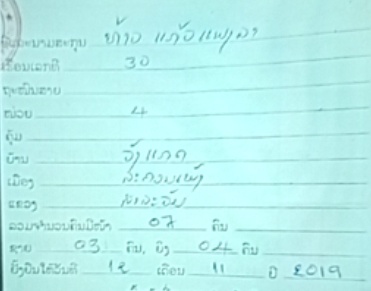 ຊື່ແລະນາມສະກຸນ ທ້າວ ແກ້ວແພງລາ
ເຮືອນເລກທີ 30
ຖະໜົນສາຍ
ໜ່ວຍ 4
ຄຸ້ມ
ບ້ານ
ເມືອງ ລະຄອນເພັງ
ແຂວງ ສາລະວັນ
ລວມຈຳນວນຄົນມີໜ້າ 07 ຄົນ
ຊາຍ 03 ຄົນ, ຍິງ 04 ຄົນ
ຍັ້ງຢືນໃຫ້ວັນທີ 12 ເດືອນ 11 ປີ 2019